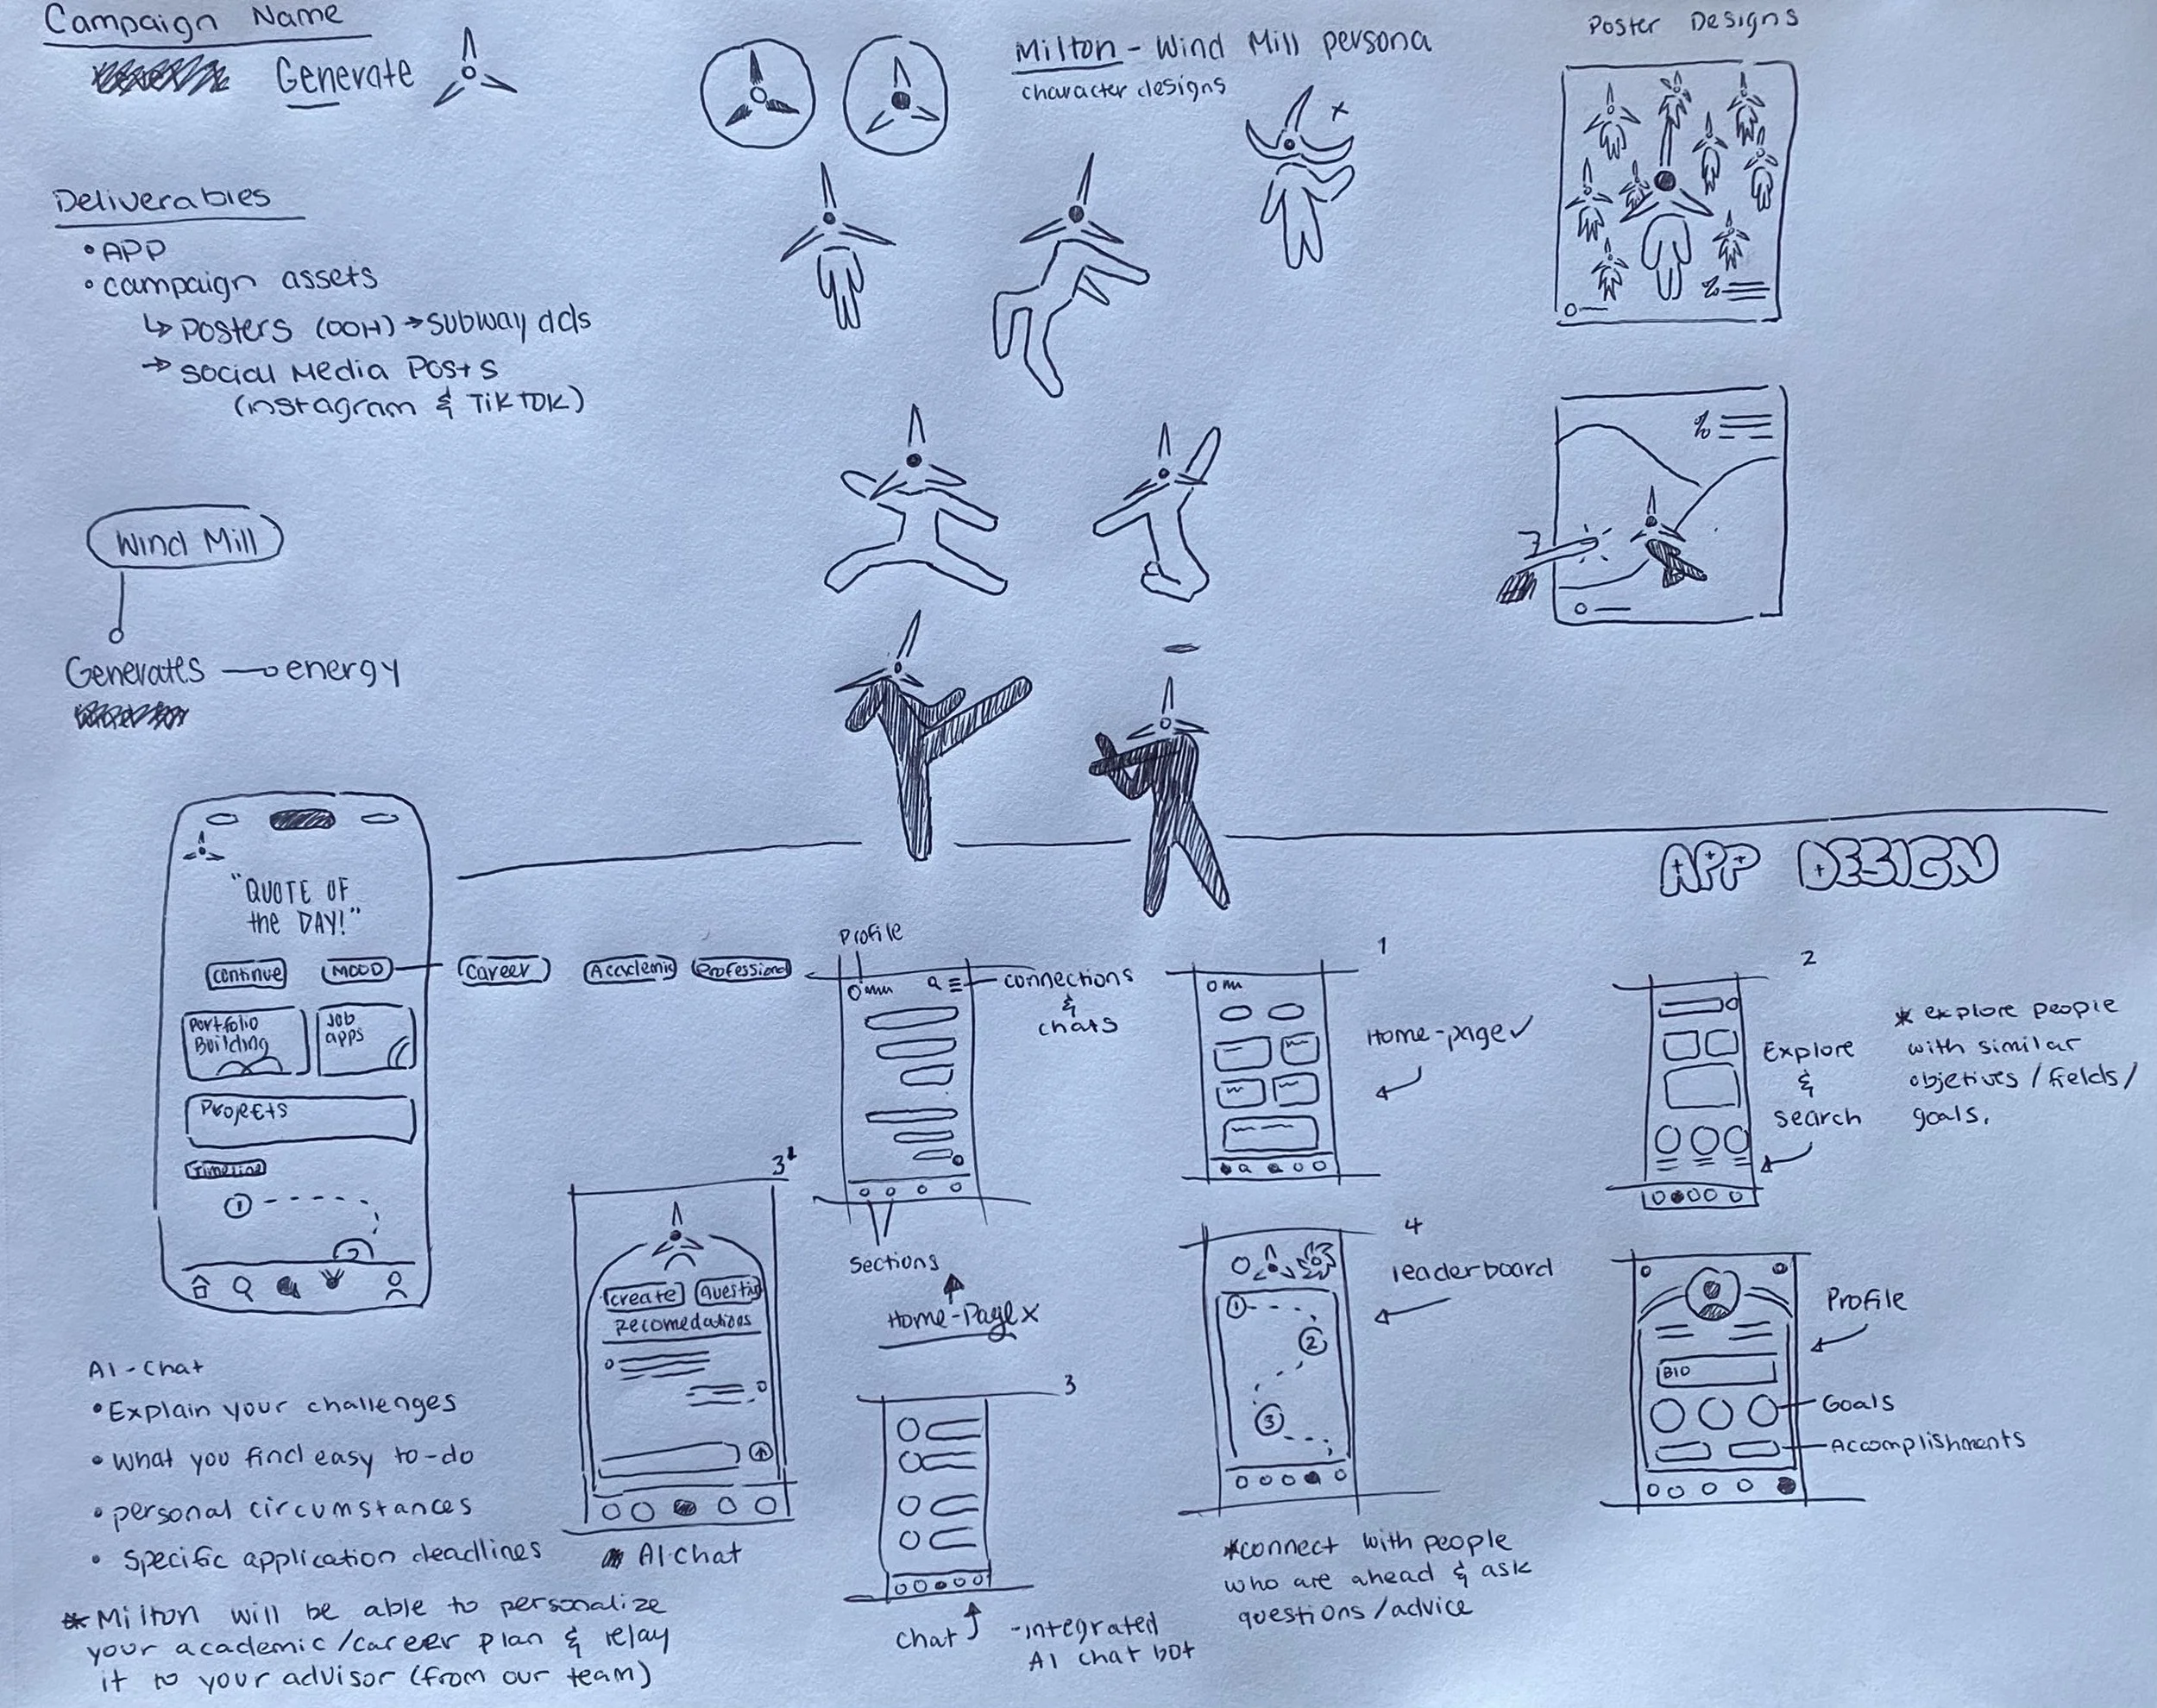 Campaign Name
Generate
Deliverables
• APP
• campaign assets
↳ Posters (OOH) → subway ads
→ social Media Posts
(instagram & TikTOK)
Wind Mill
Generates — energy
Milton - Wind Mill persona
character designs
x
Poster Designs
%
%
APP DESIGN
"QUOTE OF
the DAY!"
continue
MOOD
Career
Academic
Professional
Portfolio
Building
Job
apps
Projects
Timeline
1
2
Profile
connections
&
chats
Sections
Home-Page x
1
Home-page ✓
2
Explore
&
search
* explore people
with similar
objetives / fields /
goals.
3
create
Questin
Recomedations
AI-chat
3
chat
-integrated
AI chat bot
4
leaderboard
1
2
3
*connect with people
who are ahead & ask
questions/advice
Profile
BIO
Goals
Accomplishments
AI-chat
• Explain your challenges
• what you find easy to-do
• personal circumstances
• specific application deadlines
* Milton will be able to personalize
your academic/career plan & relay
it to your advisor (from our team)